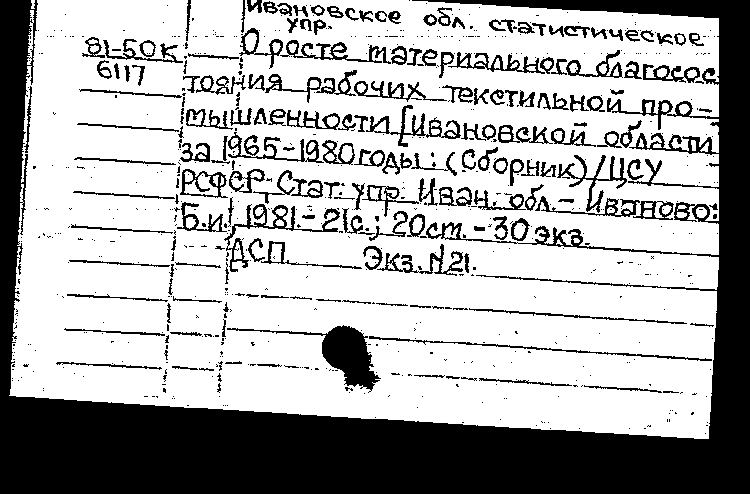 Ивановское обл. статистическое
упр.
81-50К О росте материального благосос
6117 тояния рабочих текстильной про-
мышленности [Ивановской области]
за 1965-1980 годы : (Сборник) / ЦСУ
РСФСР, Стат. упр. Иван. обл. - Иваново:
Б.и., 1981. - 21с.; 20см. - 30 экз.
ДСП Экз. №21.